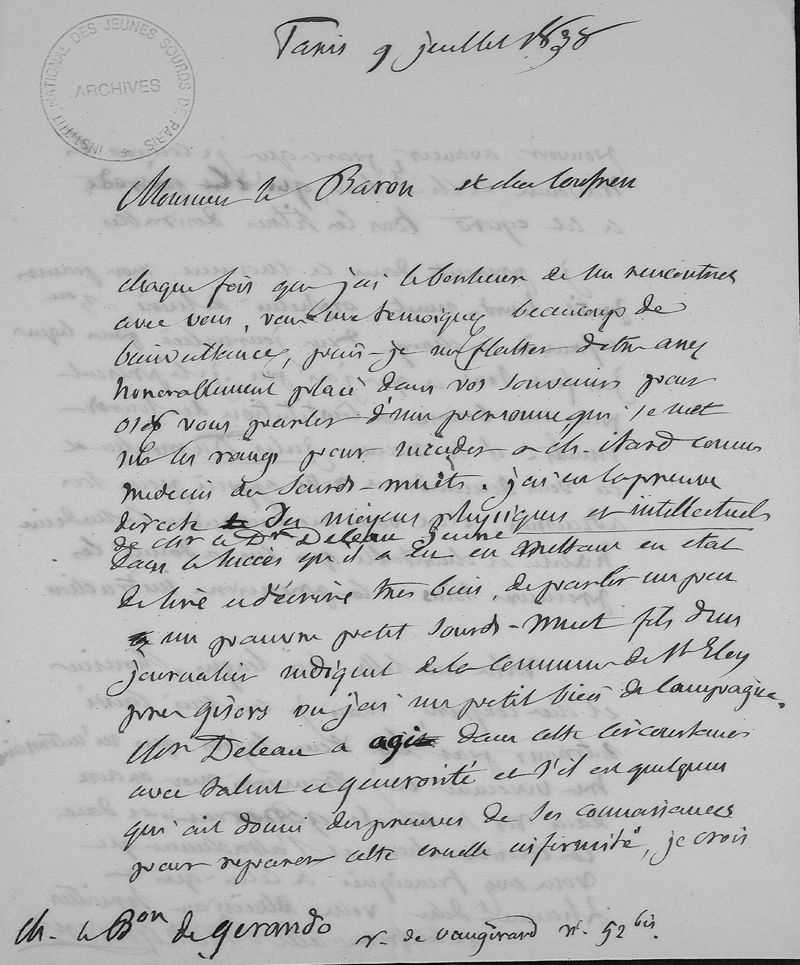 INSTITUT NATIONAL DES JEUNES SOURDS DE PARIS
ARCHIVES
Paris 9 juillet 1838
Monsieur le Baron et cher Confrere
chaque fois que j'ai le bonheur de me rencontrer
avec vous, vous me temoignez beaucoup de
bienveillance, puis-je me flatter d'etre assez
honorablement placé dans vos souvenirs pour
oser vous parler d'une personne qui se met
sur les rangs pour succeder a Mr. itard comme
medecin des Sourds-muets. j'ai eu la preuve
directe des moyens physiques et intellectuels
de Mr le Dr Deleau jeune
dans le succès qu'il a eu en mettant en etat
de lire et d'écrire très bien, de parler un peu
un pauvre petit Sourd-Muet fils d'un
journalier indigent de la Commune de St Eloy
près gisors ou j'ai un petit bien de Campagne.
Mr Deleau a agi dans cette Circonstance
avec talent et generosité et s'il est quelqu'un
qui ait donné des preuves de ses connaissances
pour reparer cette cruelle infirmité, je crois
Mr. le Bon de Gerando r. de vaugirard n. 52 bis.